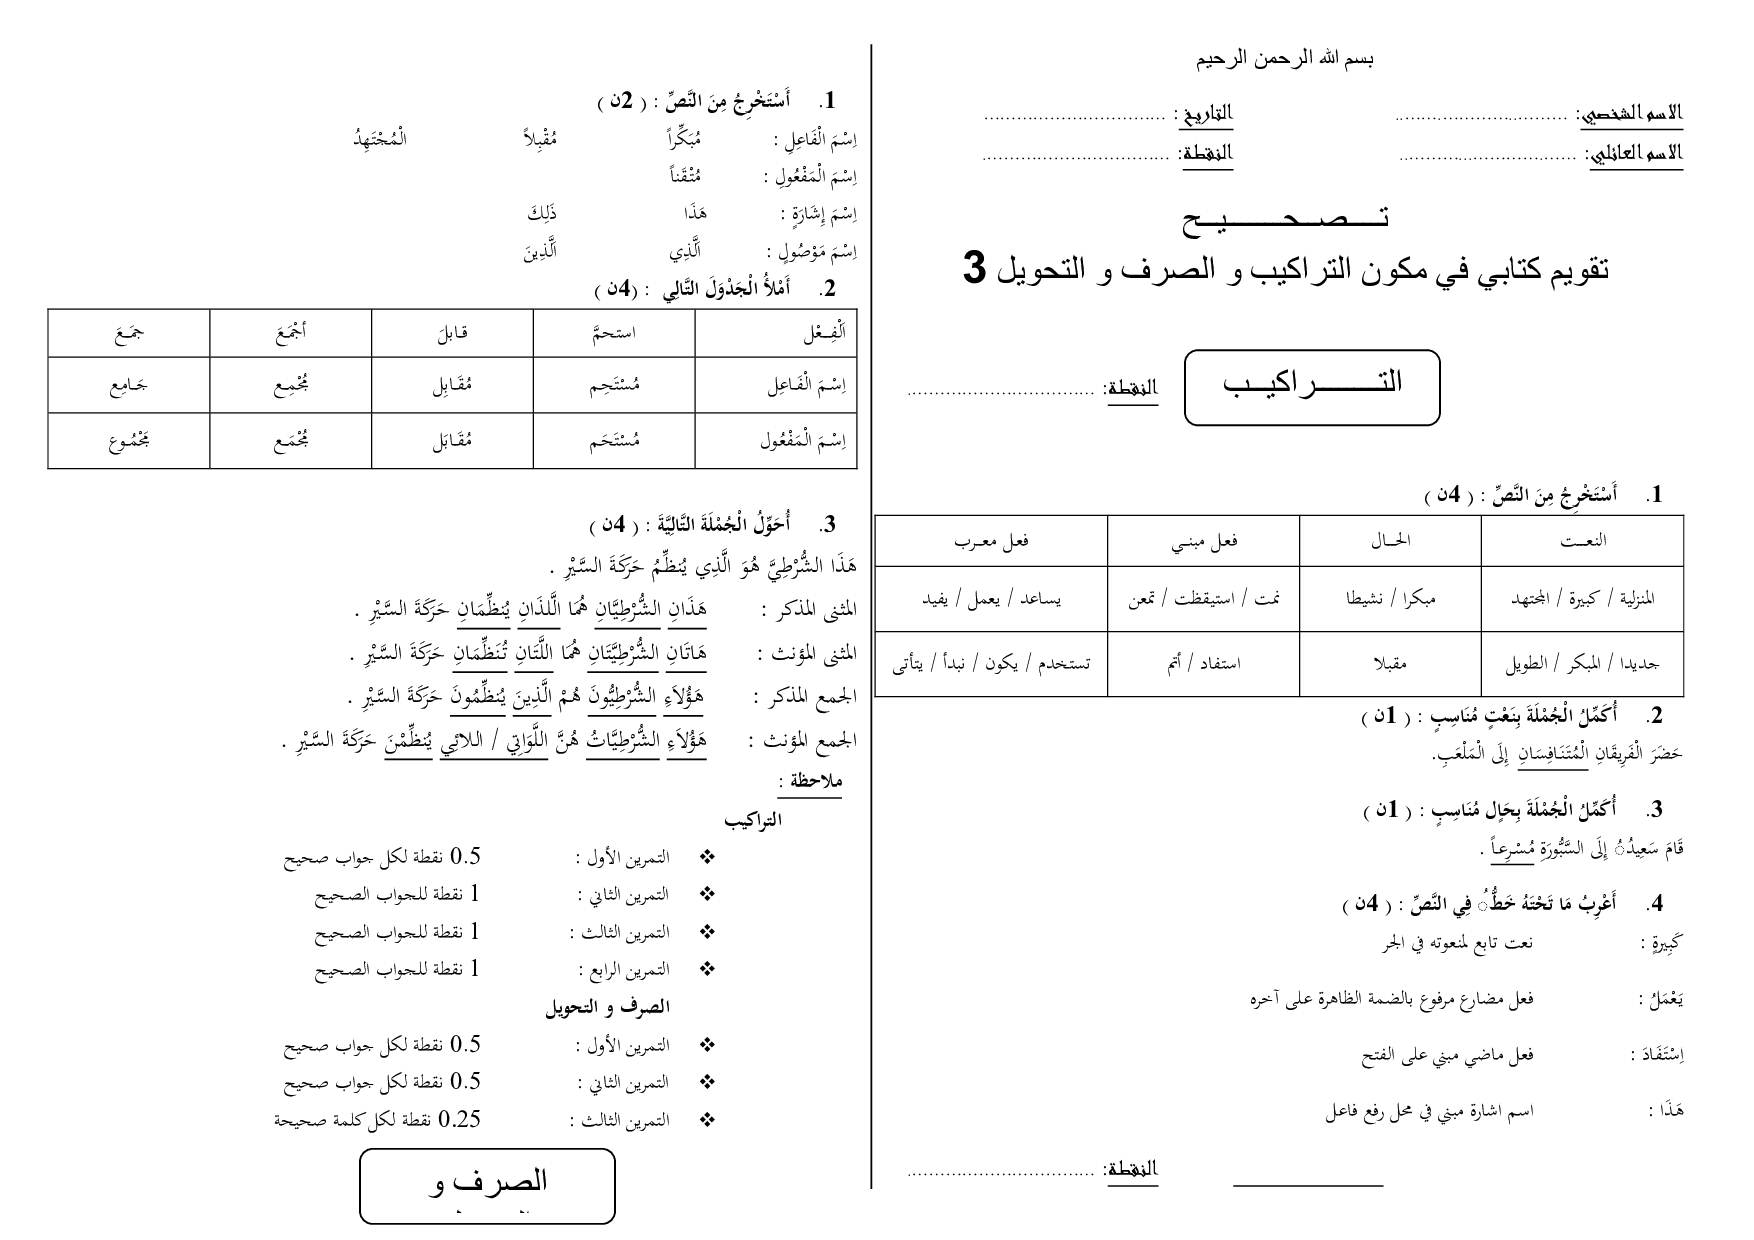 بسم الله الرحمن الرحيم
الاسم الشخصي: .................................. التاريخ : ..................................
الاسم العائلي: .................................. النقطة: ..................................
تـــصـــحـــــــيـــح
تقويم كتابي في مكون التراكيب و الصرف و التحويل 3
التـــــــراكيـــب النقطة: ..................................
1. أَسْتَخْرِجُ مِنَ النَّصِّ : ( 4ن )
النعـــت الحـــال فعـل مبنـي فعـل معـرب
المنزلية / كبيرة / المجتهد مبكرا / نشيطا نمت / استيقظت / تمعن يساعد / يعمل / يفيد
جديدا / المبكر / الطويل مقبلا استفاد / أتم تستخدم / يكون / نبدأ / يتأتى
2. أُكَمِّلُ الْجُمْلَةَ بِنَعْتٍ مُنَاسِبٍ : ( 1ن )
حَضَرَ الْفَرِيقَانِ الْمُتَنَافِسَانِ إِلَى الْمَلْعَبِ.
3. أُكَمِّلُ الْجُمْلَةَ بِحَالٍ مُنَاسِبٍ : ( 1ن )
قَامَ سَعِيدُُ إِلَى السَّبُّورَةِ مُسْرِعاً .
4. أَعْرِبُ مَا تَحْتَهُ خَطُّ ُ فِي النَّصِّ : ( 4ن )
كَبِيرَةٍ : نعت تابع لمنعوته في الجر
يَعْمَلُ : فعل مضارع مرفوع بالضمة الظاهرة على آخره
اِسْتَفَادَ : فعل ماضي مبني على الفتح
هَذَا : اسم اشارة مبني في محل رفع فاعل
النقطة: ..................................
1. أَسْتَخْرِجُ مِنَ النَّصِّ : ( 2ن )
اِسْمَ الْفَاعِلِ : مُبَكِّراً مُقْبِلاً الْمُجْتَهِدُ
اِسْمَ الْمَفْعُولِ : مُتْقَناً
اِسْمَ إِشَارَةٍ : هَذَا ذَلِكَ
اِسْمَ مَوْصُولٍ : اَلَّذِي اَلَّذِينَ
2. أَمْلأُ الْجَدْوَلَ التَّالِي : (4ن )
اَلْفِـعْل استحمَّ قـابلَ أجْمَعَ جمَـعَ
اِسْـمَ الْفَـاعِل مُسْتَحِم مُقَـابِل مُجْمِـع جَـامِع
اِسْـمَ الْمَفْعُول مُسْتَحَم مُقَـابَل مُجْمَـع مَجْمُـوع
3. أُحَوِّلُ الْجُمْلَةَ التَّالِيَّةَ : ( 4ن )
هَذَا الشُّرْطِيَّ هُوَ الَّذِي يُنظِّمُ حَرَكَةَ السَّيْرِ .
المثنى المذكر : هَذَانِ الشُّرْطِيَّانِ هُمَا الَّلذَانِ يُنظِّمَانِ حَرَكَةَ السَّيْرِ .
المثنى المؤنث : هَاتَانِ الشُّرْطِيَّتَانِ هُمَا اللَّتَانِ تُنَظِّمَانِ حَرَكَةَ السَّيْرِ .
الجمع المذكر : هَؤُلاَءِ الشُّرْطِيُّونَ هُمْ الَّذِينَ يُنظِّمُونَ حَرَكَةَ السَّيْرِ .
الجمع المؤنث : هَؤُلاَءِ الشُّرْطِيَّاتُ هُنَّ اللَّوَاتِي / اللائِي يُنظِّمْنَ حَرَكَةَ السَّيْرِ .
ملاحظة :
التراكيب
❖ التمرين الأول : 0.5 نقطة لكل جواب صحيح
❖ التمرين الثاني : 1 نقطة للجواب الصحيح
❖ التمرين الثالث : 1 نقطة للجواب الصحيح
❖ التمرين الرابع : 1 نقطة للجواب الصحيح
الصرف و التحويل
❖ التمرين الأول : 0.5 نقطة لكل جواب صحيح
❖ التمرين الثاني : 0.5 نقطة لكل جواب صحيح
❖ التمرين الثالث : 0.25 نقطة لكل كلمة صحيحة
الصرف و